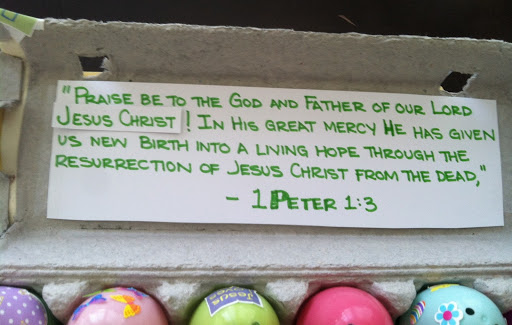 "Praise be to the God and Father of our Lord
Jesus Christ! In His great mercy He has given
us new birth into a living hope through the
resurrection of Jesus Christ from the dead,"
- 1 Peter 1:3
Jesus